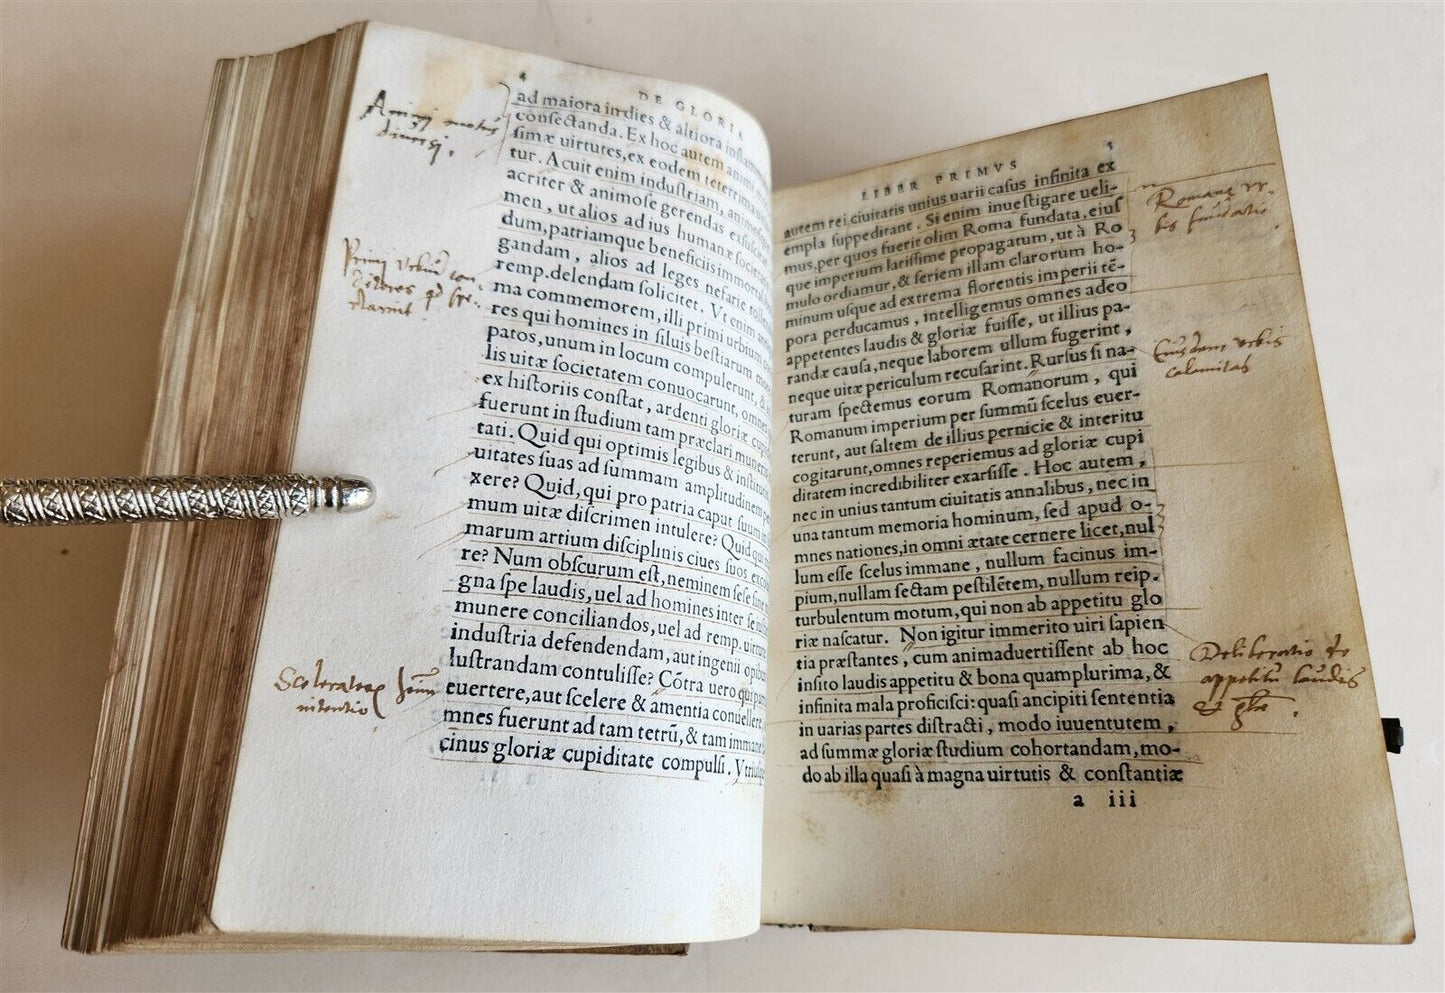 4
DE GLORIA
ad maiora in dies & altiora
consectanda. Ex hoc autem animi
simæ uirtutes, ex eodem teterrima
tur. Acuit enim industriam,
acriter & animose gerendas
men, ut alios ad ius humanæ
dum, patriamque beneficiis
gandam, alios ad leges nefarie
remp. delendam solicitet. Vt enim
ma commemorem, illi primi urbium
res qui homines in siluis bestiarum
patos, unum in locum compulerunt, &
lis uitæ societatem conuocarunt, omnes
ex historiis constat, ardenti gloriæ
fuerunt in studium tam præclari
tati. Quid qui optimis legibus &
uitates suas ad summam amplitudinem
xere? Quid, qui pro patria caput suum
mum uitæ discrimen intulere? Quid qui
marum artium disciplinis ciues suos
re? Num obscurum est, neminem sese
gna spe laudis, uel ad homines inter se
munere conciliandos, uel ad remp. uirtute
industria defendendam, aut ingenii opibus
lustrandam contulisse? Cōtra uero qui
euertere, aut scelere & amentia
mnes fuerunt ad tam tetrū, & tam
cinus gloriæ cupiditate compulsi.
diuersi.
Primi urbium
LIBER PRIMVS
3
autem rei ciuitatis unius uarii casus infinita ex
empla suppeditant. Si enim inuestigare ueli-
mus, per quos fuerit olim Roma fundata, eius
que imperium latissime propagatum, ut à Ro
mulo ordiamur, & seriem illam clarorum ho-
minum usque ad extrema florentis imperii tē-
pora perducamus, intelligemus omnes adeo
appetentes laudis & gloriæ fuisse, ut illius pa-
randæ causa, neque laborem ullum fugerint,
neque uitæ periculum recusarint. Rursus si na-
turam spectemus eorum Romanorum, qui
Romanum imperium per summū scelus euer-
terunt, aut saltem de illius pernicie & interitu
cogitarunt, omnes reperiemus ad gloriæ cupi
ditatem incredibiliter exarsisse. Hoc autem,
nec in unius tantum ciuitatis annalibus, nec in
una tantum memoria hominum, sed apud o-
mnes nationes, in omni ætate cernere licet, nul
lum esse scelus immane, nullum facinus im-
pium, nullam sectam pestilētem, nullum reip.
turbulentum motum, qui non ab appetitu glo
riæ nascatur. Non igitur immerito uiri sapien
tia præstantes, cum animaduertissent ab hoc
insito laudis appetitu & bona quamplurima, &
infinita mala proficisci: quasi ancipiti sententia
in uarias partes distracti, modo iuuentutem,
ad summæ gloriæ studium cohortandam, mo-
do ab illa quasi à magna uirtutis & constantiæ
a iii
Romanę vr-
bis fundatio
Eiusdem urbis
calamitas
Deliberatio de
appetitu laudis